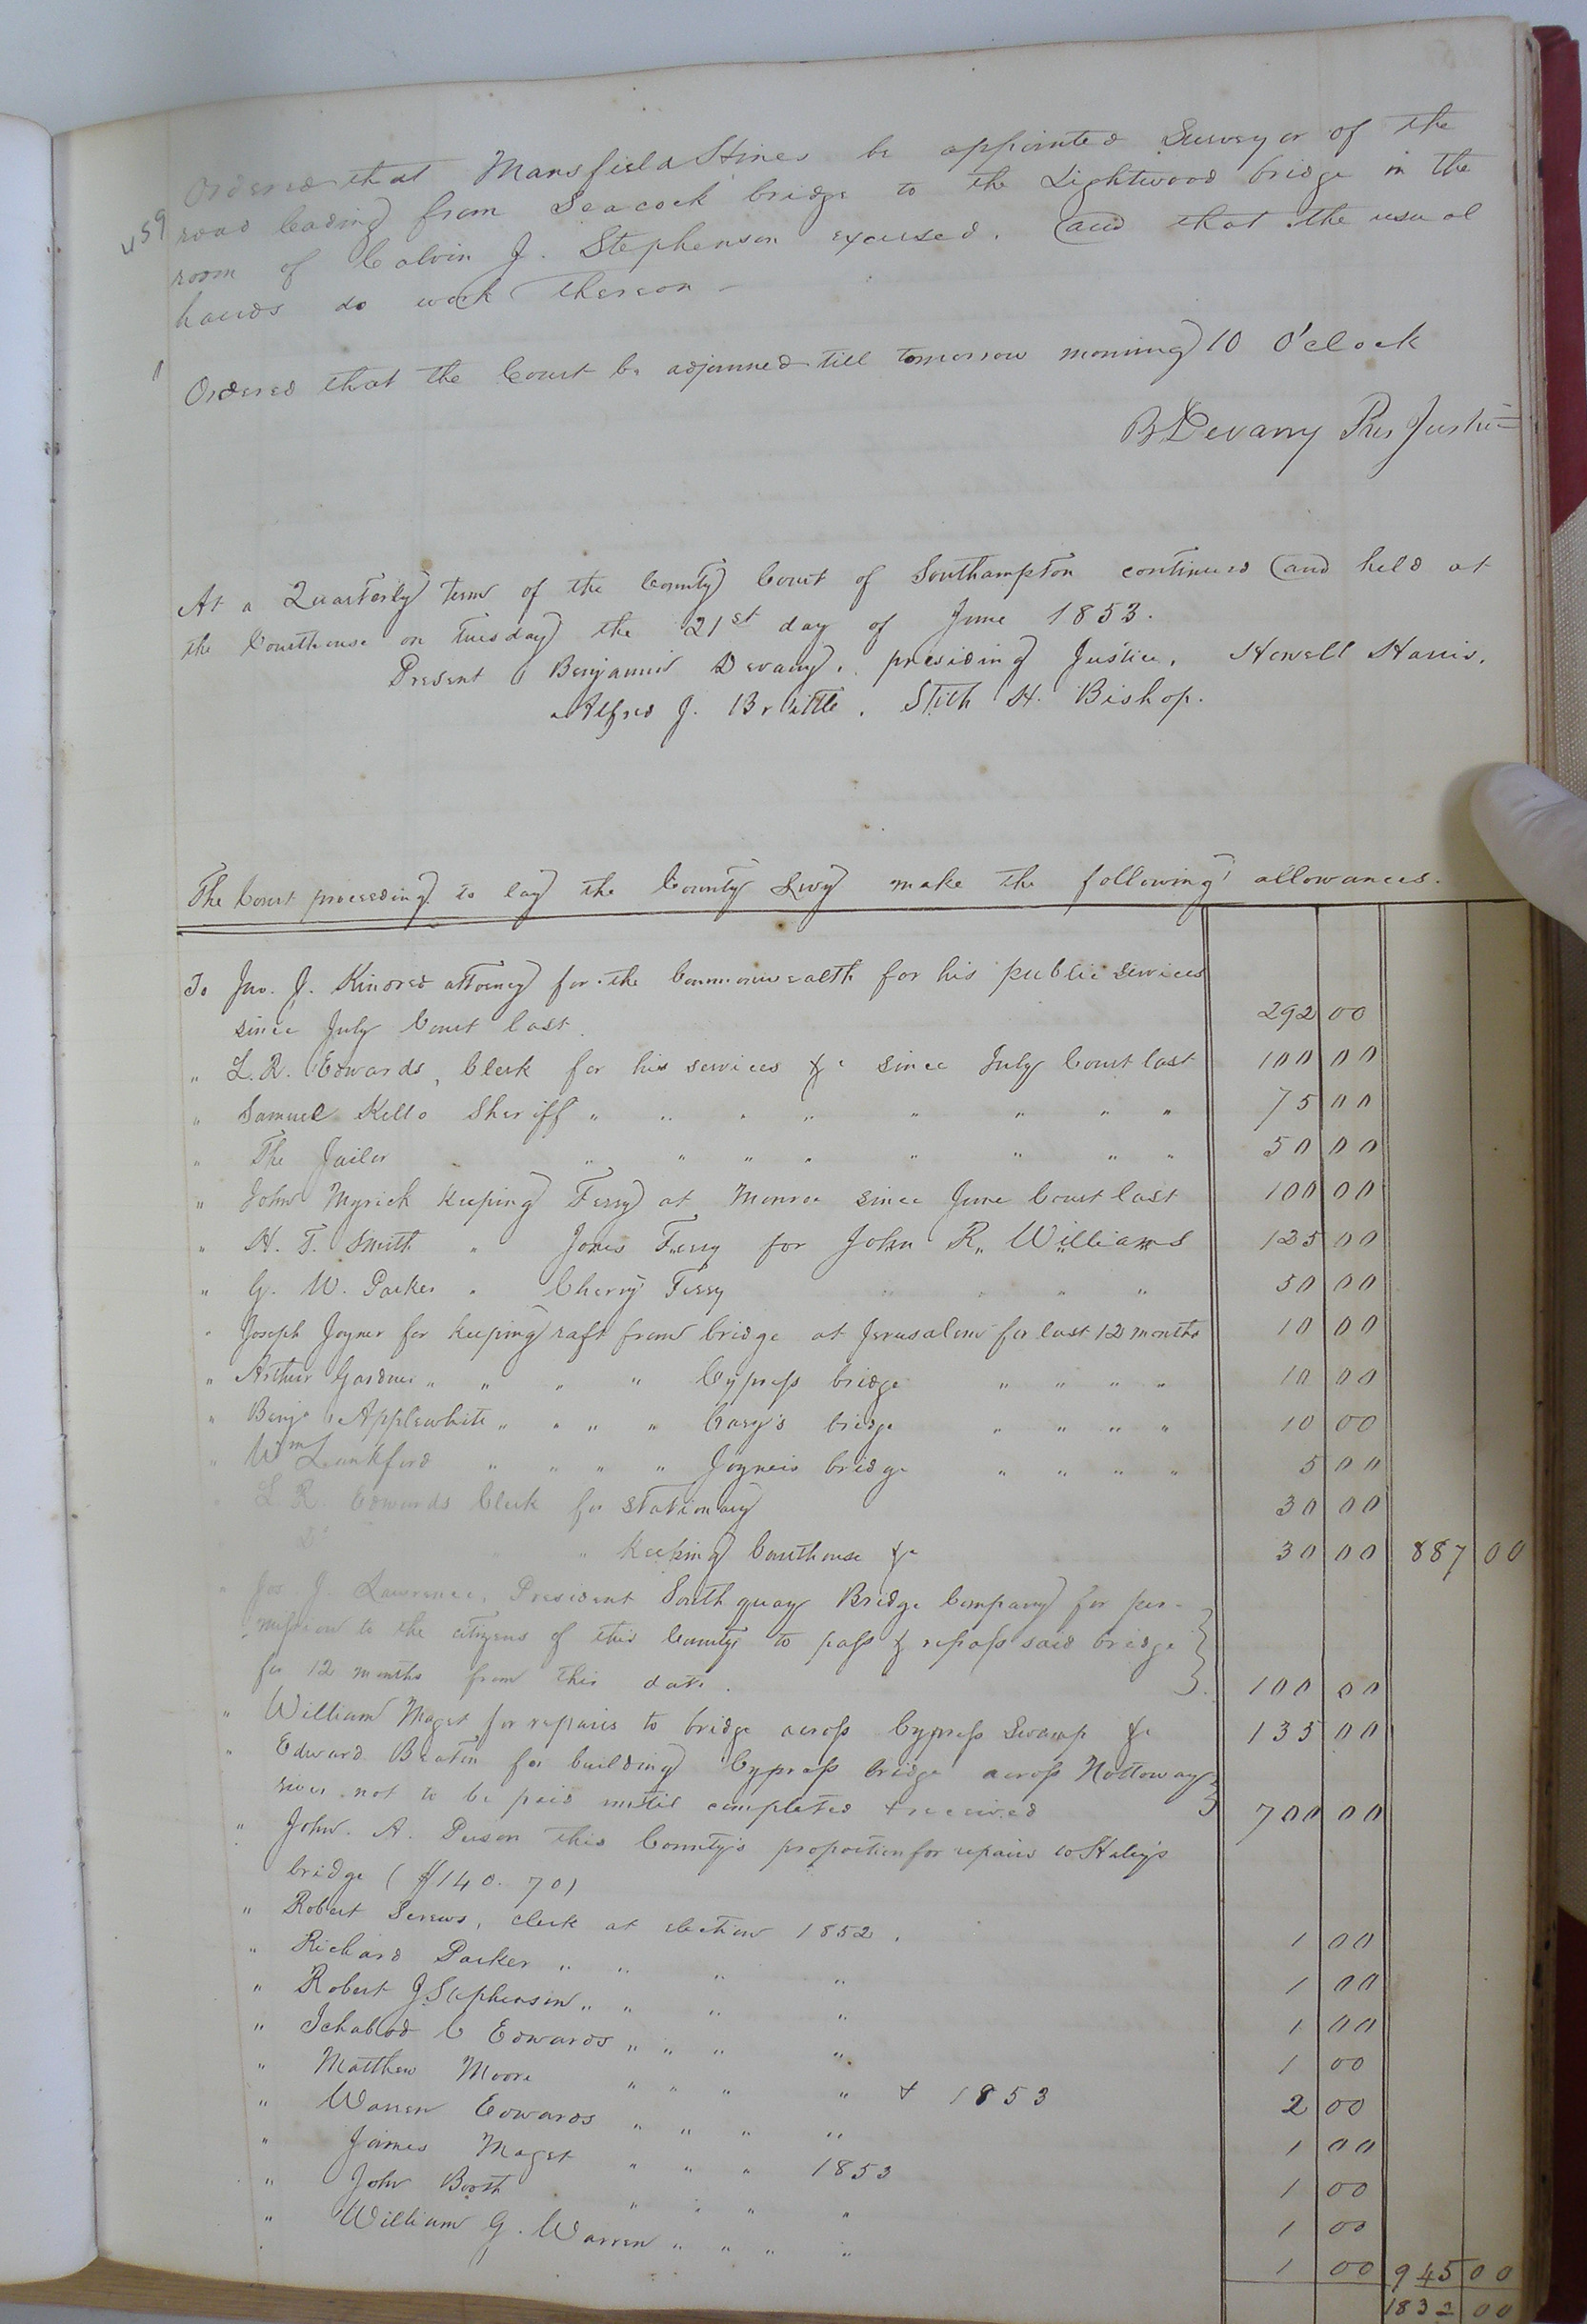 Ordered that Mansfield Hines be appointed Surveyor of the
459 road leading from Seacock bridge to the Lightwood bridge in the
room of Calvin J. Stephenson excused. and that the usual
hands do work thereon -
Ordered that the Court be adjourned till tomorrow morning 10 O'clock
B Devany Pres Justice
At a Quarterly term of the County Court of Southampton continued and held at
the Courthouse on Tuesday the 21st day of June 1853.
Present Benjamin Devany, presiding Justice, Howell Harris,
Alfred J. Brittle, Stith H. Bishop.
The Court proceeding to lay the County Levy make the following allowances.
To Jno. J. Kindred attorney for the Commonwealth for his public services
since July Court last 292 00
" L. R. Edwards, Clerk for his services &c since July Court last 100 00
" Samuel Kello Sheriff " " " " " " " " 75 00
" The Jailor " " " " " " " " 50 00
" John Myrick keeping Ferry at Monroe since June Court last 100 00
" H. T. Smith " Jones Ferry for John R. Williams 125 00
" G. W. Parker " Cherry Ferry " " " " 50 00
" Joseph Joyner for keeping raft from bridge at Jerusalem for last 12 months 10 00
" Arthur Gardner " " " " Cypress bridge " " " " 10 00
" Benja Applewhite " " " " Cary's bridge " " " " 10 00
" Wm Lankford " " " " Joyners bridge " " " " 5 00
" L R. Edwards Clerk for stationary 30 00
" Do " " keeping Courthouse &c 30 00 887 00
" Jos. J. Lawrence, President South quay Bridge Company for per-
mission to the citizens of this County to pass & repass said bridge
for 12 months from this date. 100 00
" William Maget for repairs to bridge across Cypress Swamp &c 135 00
" Edward Beaton for building Cypress bridge across Nottoway
river not to be paid until completed & received 700 00
" John A. Person this County's proportion for repairs to Haley's
bridge ($140.70)
" Robert Screws, clerk at election 1852. 1 00
" Richard Parker " " " " 1 00
" Robert J. Stephenson " " " " 1 00
" Ichabod C Edwards " " " " 1 00
" Matthew Moore " " " " & 1853 2 00
" Warren Edwards " " " " 1 00
" James Maget " " " 1853 1 00
" John Booth " " " " 1 00
" William G. Warren " " " " 1 00 945 00
1832 00